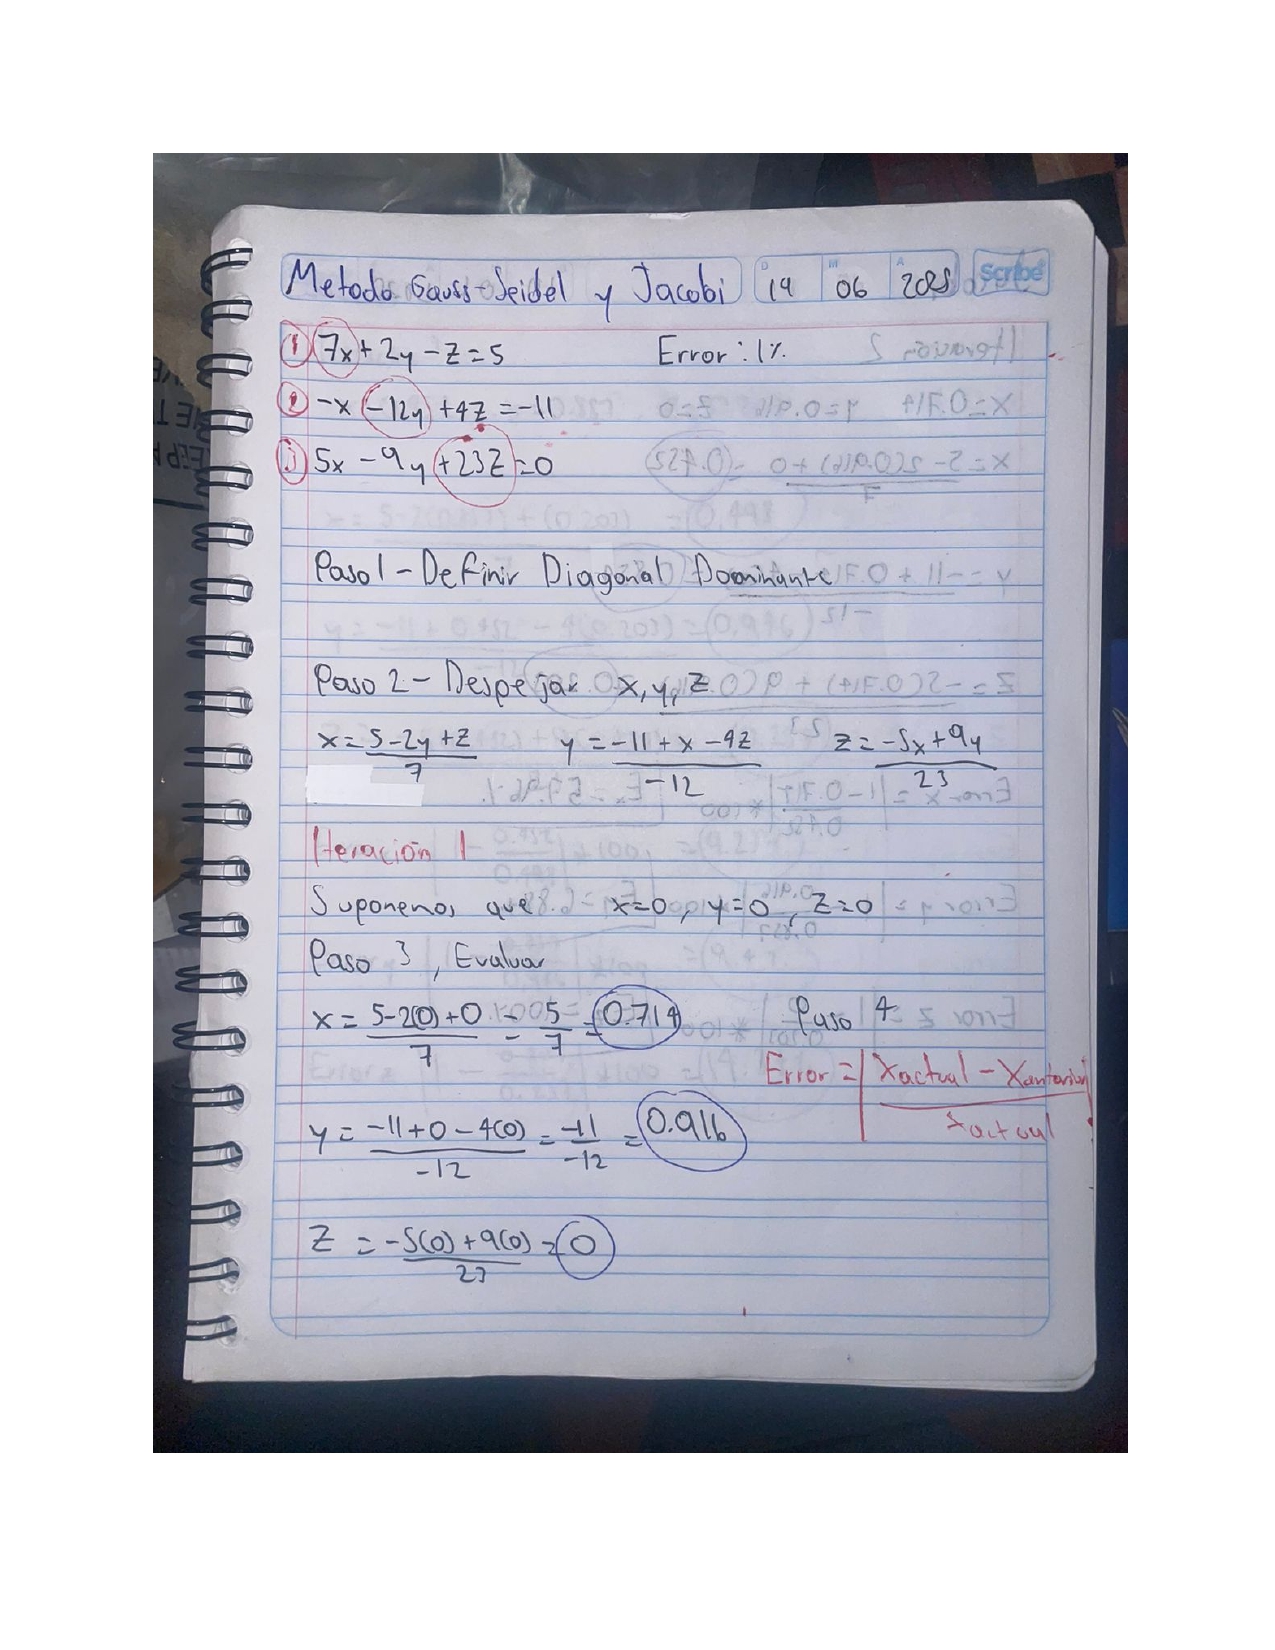 Metodo Gauss-Seidel y Jacobi D 19 M 06 A 2025 Scribe
1 7x + 2y - z = 5 Error: 1%
2 -x -12y + 4z = -11
3 5x - 9y + 23z = 0
Paso 1 - Definir Diagonal Dominante
Paso 2 - Despejar x, y, z
x = (5-2y+z)/7 y = (-11+x-4z)/-12 z = (-5x+9y)/23
Iteración 1
Suponemos que x=0, y=0, z=0
Paso 3, Evaluar
x = (5-2(0)+0)/7 = 5/7 = 0.714 Paso 4
Error = | (Xactual - Xanterior)/Xactual
y = (-11+0-4(0))/-12 = -11/-12 = 0.916
z = (-5(0)+9(0))/23 = 0